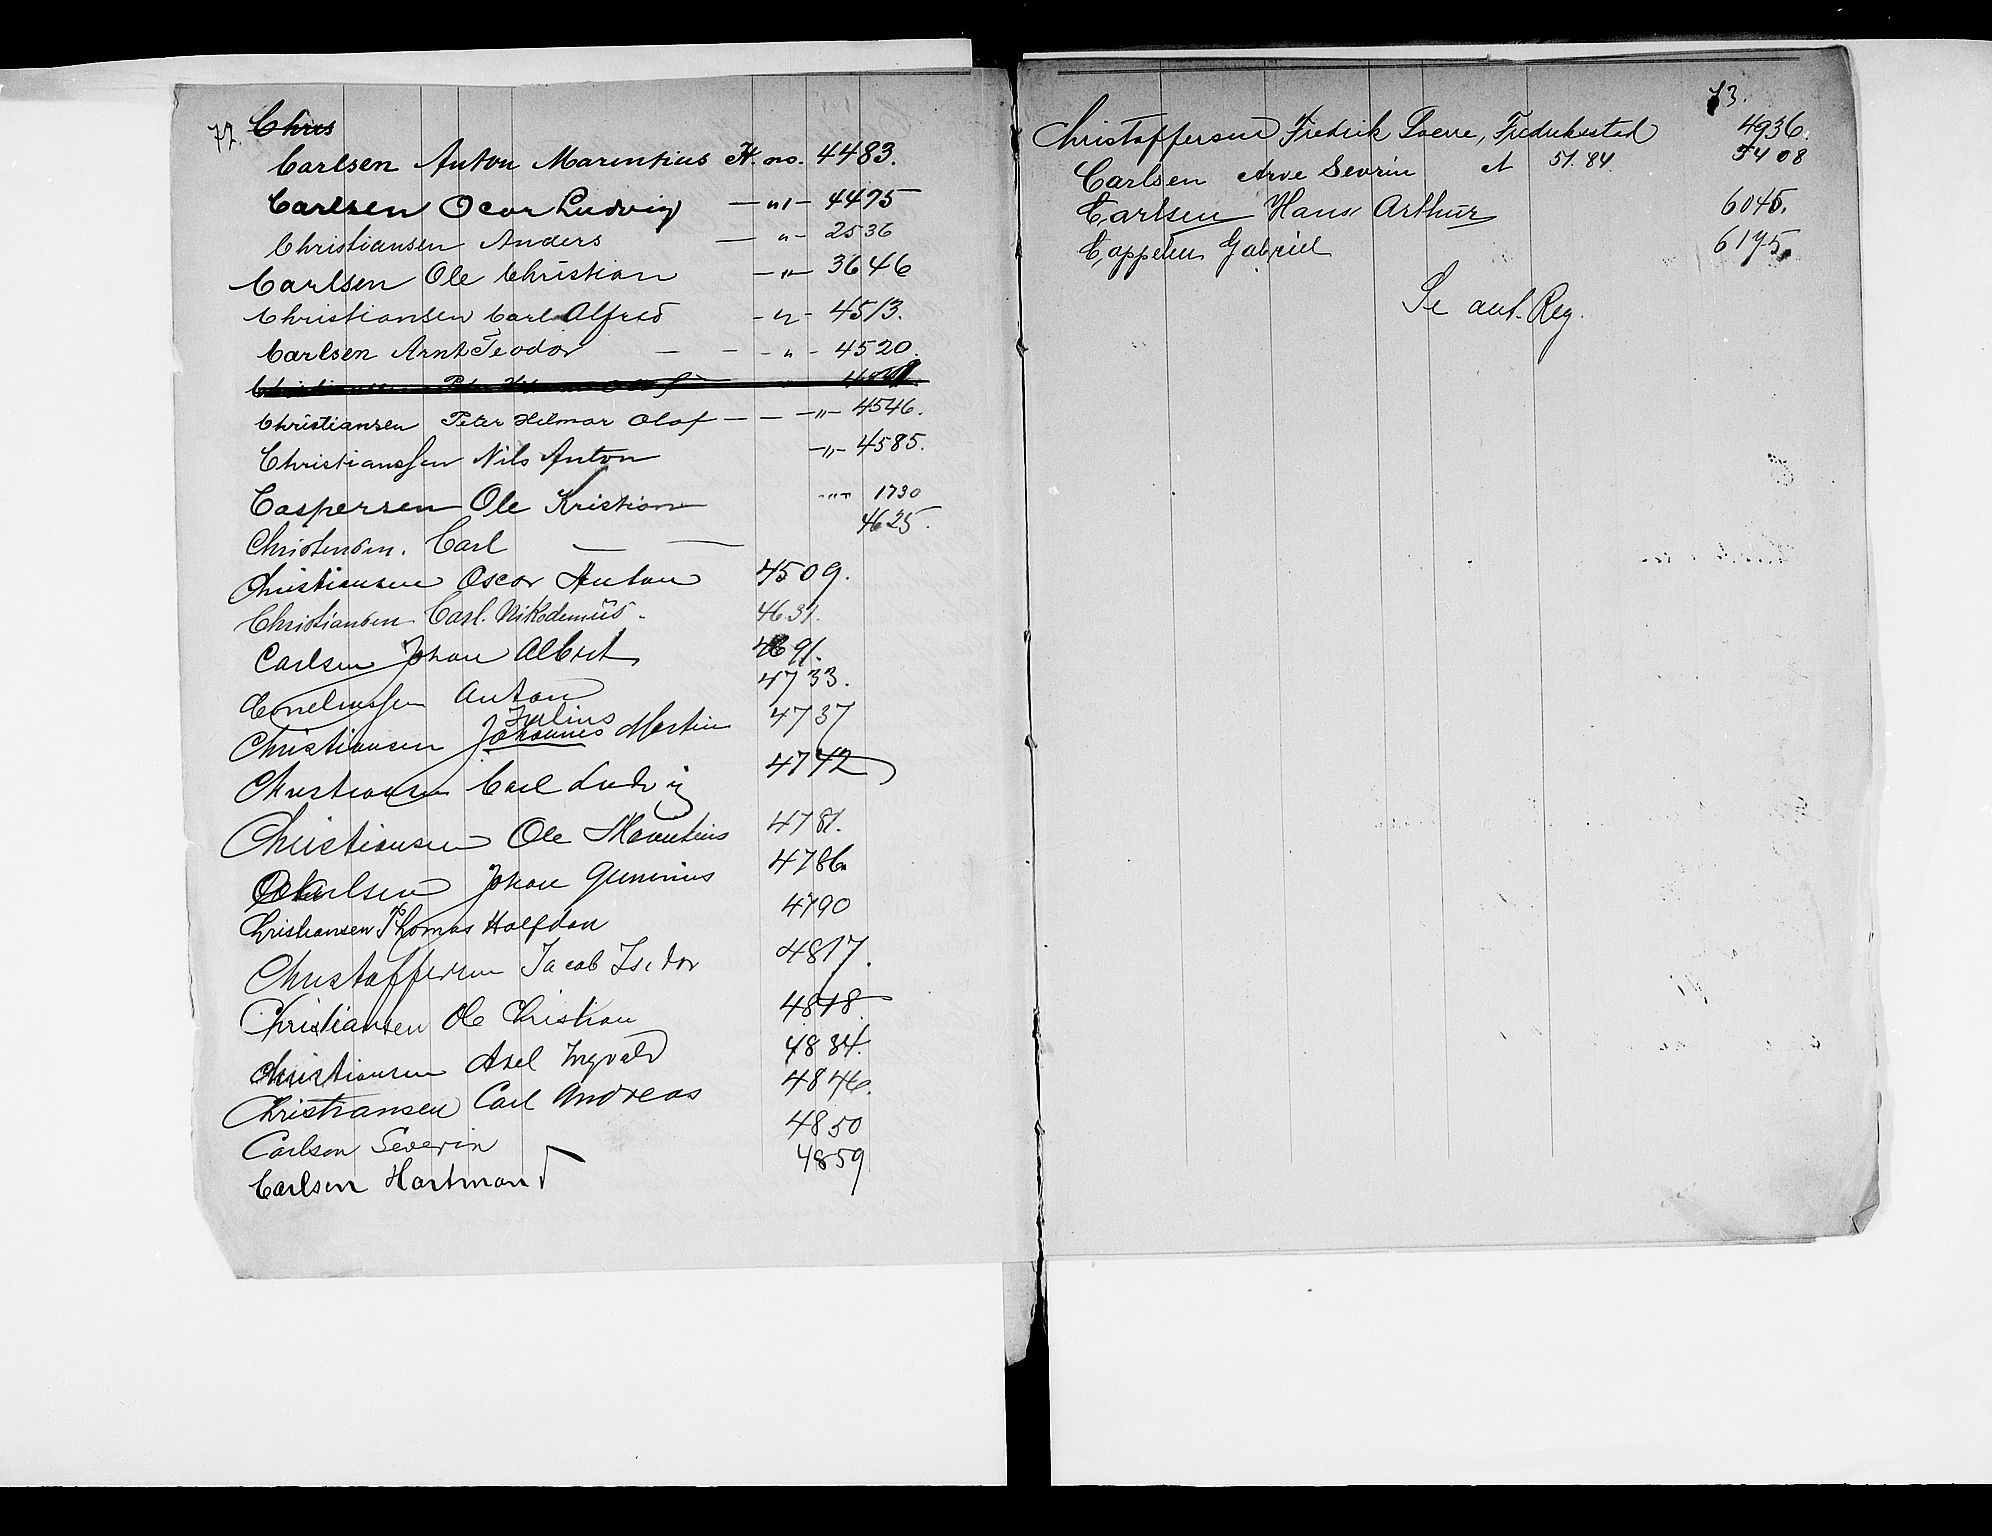 72.
Chris
Carlsen Anton Marentius H. no. 4483.
Carlsen Oscar Ludvig — " — 4495
Christiansen Anders — " — 2536
Carlsen Ole Christian — " — 3646
Christiansen Carl Alfred - " - 4513.
Carlsen Arnt Teodor — — - " - 4520.
Christiansen Peter Hilmar Olaf
Christiansen Peter Hilmar Olaf — — — " — 4546.
Christianssen Nils Anton — " — 4585.
Caspersen Ole Kristian - " - 1730
Christensen. Carl — — 4625.
Christiansen Oscar Anton 4509.
Christiansen Carl. Nikodemüs. 4631.
Carlsen Johan Albert 4691.
Corneliussen Anton 4733.
Julius
Christiansen Johannes Martin 4737
Christiansen Carl Ludvig 4742
Christiansen Ole Marentius 4781.
Carlsen Johan Gunerius 4786.
Christiansen Thomas Halfdan 4790
Christoffersen Jacob Isidor 4817.
Christiansen Ole Christian 4818
Christiansen Axel Ingvald 4834.
Christiansen Carl Andreas 4846.
Carlsen Severin 4850
Carlsen Hartman 4859
73.
Christoffersen Fredrik Fredrikstad 4936.
Carlsen Arve Sevrin A 51.84. 5408
Carlsen Hans Arthur 6045.
Cappelen Gabriel 6195.
Se Reg.